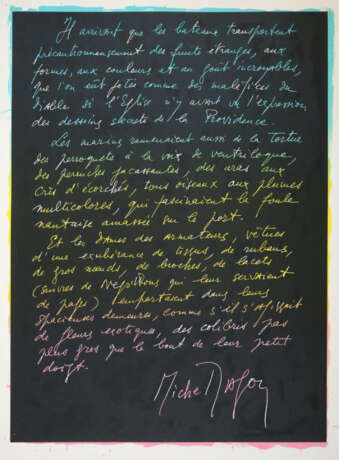 Il arrivait que les bateaux transportent
précautionneusement des fruits étranges, aux
formes, aux couleurs et au goût incroyables,
que l'on eût jetés comme des maléfices du
diable si l'Eglise n'y avait vu l'expression
des desseins secrets de la Providence.
Les marins ramenaient aussi de la Tortue
des perroquets à la voix de ventriloque,
des perruches jacassantes, des aras aux
cris d'écorchés, tous oiseaux aux plumes
multicolores, qui fascinaient la foule
nantaise amassée sur le port.
Et les dames des armateurs, vêtues
d'une exubérance de tissus, de rubans,
de gros nœuds, de broches, de lacets
(suivies de négrillons qui leur servaient
de pages) l'emportaient dans leurs
spacieuses demeures, comme s'il s'agissait
de fleurs exotiques, des colibris pas
plus gros que le bout de leur petit
doigt.
Michel Ragon